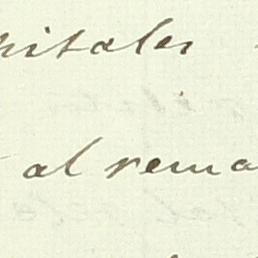 pitales
al rema